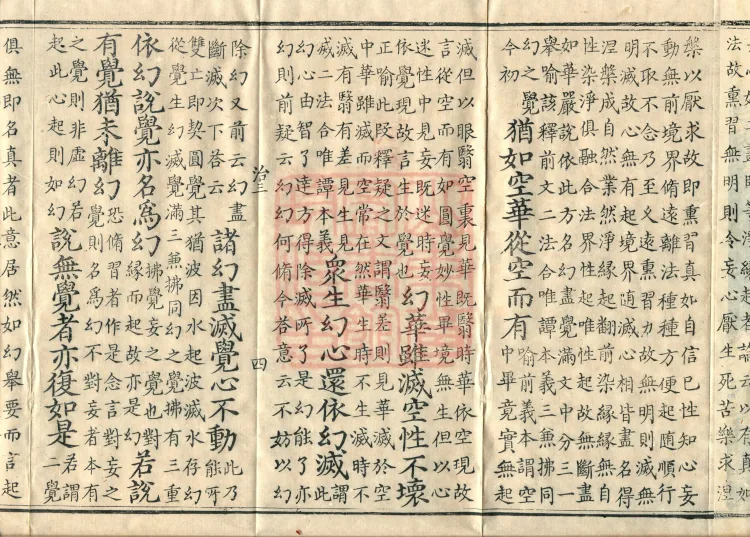 法故熏習無明則令妄心厭生死苦樂求涅
槃以厭求故即熏習真如自信己性知心妄
動無前境界脩遠離法種種方便起隨順行
不取不念乃至久遠熏習力故無明則滅無
明滅故心無有起境界隨滅心相皆盡名得
涅槃成自然業然淨緣起翻前染緣緣無自
性染淨俱融合法界性起唯性起故無斷盡
如華嚴說依此方名幻盡覺滿文中分三一
舉喻該釋前文二法合唯譚本義三兼拂同
幻之覺
今初
猶如空華從空而有
喻前本謂空
中畢竟實無起
滅但以眼翳空裏見華既翳時華依空現故
言從空而有如圓覺妙性畢境無生但以心
迷性中見妄既迷時妄
依覺現故言生於覺也
幻華雖滅空性不壞
正喻此段釋疑之文謂翳差則見華滅於空
中華雖滅而空常在然華生時不生滅時不
滅有翳有差見生見
滅二法合唯譚本義
眾生幻心還依幻滅
此謂
幻心由智了達方得除滅所了是幻能了亦
幻則前疑云幻幻何脩今荅意云不妨以幻
治三
四
除幻又前云幻盡
斷滅次下荅云
諸幻盡滅覺心不動
此乃
能所
雙亡即契圓覺其猶波因水起波滅水存幻
從覺生幻滅覺滿三兼拂同幻之覺拂有三重
依幻說覺亦名為幻
拂覺妄之覺也對
緣而起故亦是幻
若說
有覺猶未離幻
恐脩習者作是念言對妄之
覺則名為幻不對妄者本有
之覺則非虛幻若
起此心起則如幻
說無覺者亦復如是
若謂
二覺
俱無即名真者此意居然如幻舉要而言起